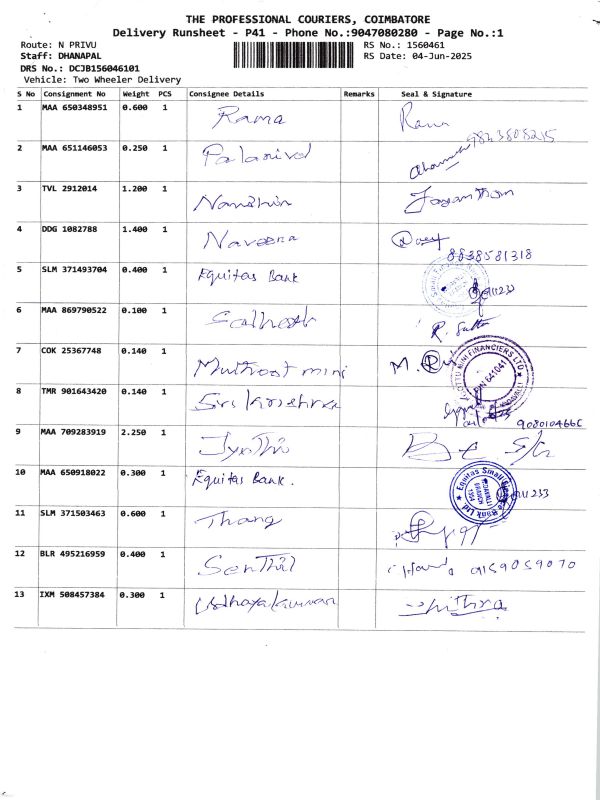 THE PROFESSIONAL COURIERS, COIMBATORE
Delivery Runsheet - P41 - Phone No.:9047080280 - Page No.:1
Route: N PRIVU RS No.: 1560461
Staff: DHANAPAL RS Date: 04-Jun-2025
DRS No.: DCJB156046101
Vehicle: Two Wheeler Delivery
S No Consignment No Weight PCS Consignee Details Remarks Seal & Signature
1 MAA 650348951 0.600 1 Rama Rama
9823808215
2 MAA 651146053 0.250 1 Palanivel
3 TVL 2912014 1.200 1
4 DDG 1082788 1.400 1 Naveena
8838581318
5 SLM 371493704 0.400 1 Equitas Bank
6 MAA 869790522 0.100 1 R.
7 COK 25367748 0.140 1 Muthoot mini M.
8 TMR 901643420 0.140 1 Siri Krishna
9 MAA 709283919 2.250 1
10 MAA 650918022 0.300 1 Equitas Bank.
11 SLM 371503463 0.600 1 Thang
12 BLR 495216959 0.400 1 Senthil 9159059070
13 IXM 508457384 0.300 1 Udhayakumar Chithra